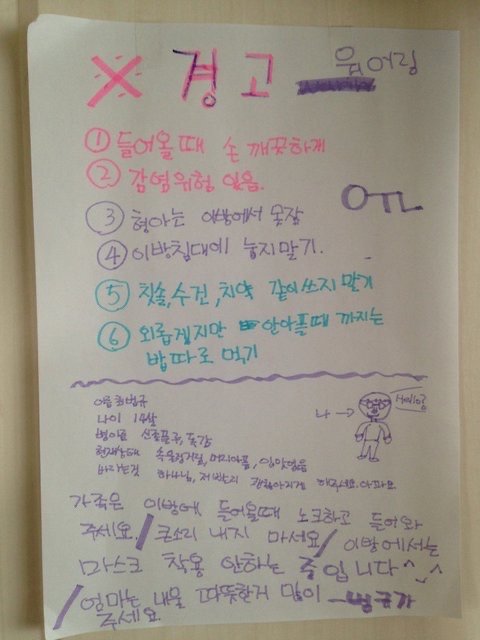 ※ 경고 워어링
① 들어올때 손 깨끗하게
② 감염위험 있음.
③ 형아는 이방에서 못잠
OTL
④ 이방침대에 눕지말기.
⑤ 칫솔, 수건, 치약 같이쓰지 말기
⑥ 외롭겠지만 안아플때 까지는
밥따로 먹기
이름 최범규
나이 14살
병이름 신종플루, 독감
현재상태 속울렁거림, 머리아픔, 입맛없음
바라는것 하나님, 저 빨리 해주세요. 아파요.
나 →
가족은 이방에 들어올때 노크하고 들어와
주세요. / 큰소리 내지 마세요 / 이방에서는
마스크 착용 안하는 중입니다 ^_^
/ 엄마는 내일 따뜻한거 많이 - 범규가
주세요.